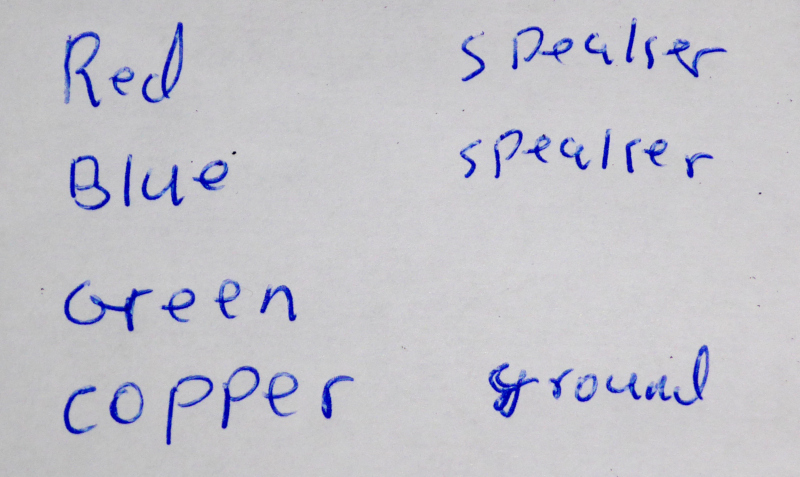 Red speaker
Blue speaker
Green
copper ground